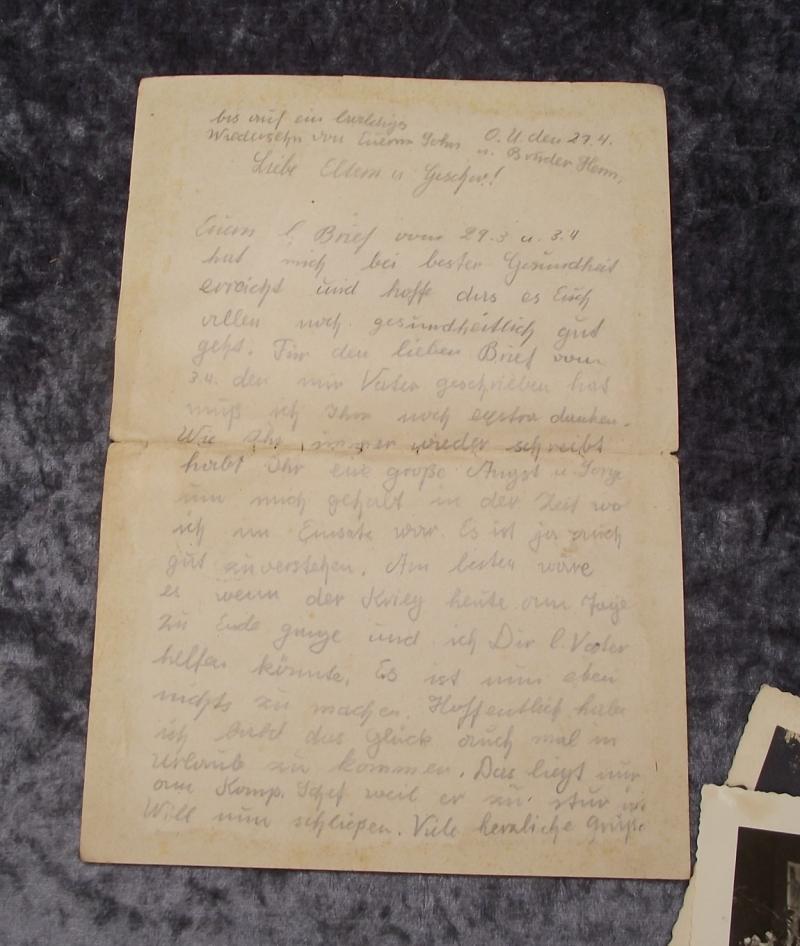 bis auf ein baldiges
Wiedersehn von Euerm Sohn
O. U. den 27.4.
u. Bruder Herm.
Liebe Eltern u Geschw!
Euern l Brief vom 29.3 u. 3.4
hat mich bei bester Gesundheit
erreicht und hoffe das es Euch
allen noch gesundheitlich gut
geht. Für den lieben Brief vom
3.4. den mir Vater geschrieben hat
muß ich Ihm noch extra danken.
Wie Ihr immer wieder schreibt
habt Ihr eine große Angst u Sorge
um mich gehabt in der Zeit wo
ich im Einsatz war. Es ist ja auch
gut zu verstehen. Am besten wäre
es wenn der Krieg heute am Tage
zu Ende ginge und ich Dir l. Vater
helfen könnte. Es ist nun eben
nichts zu machen. Hoffentlich habe
ich bald das Glück auch mal in
Urlaub zu kommen. Das liegt nur
am Komp. Schef weil er zu stur ist
Will nun schließen. Viele herzliche Grüße